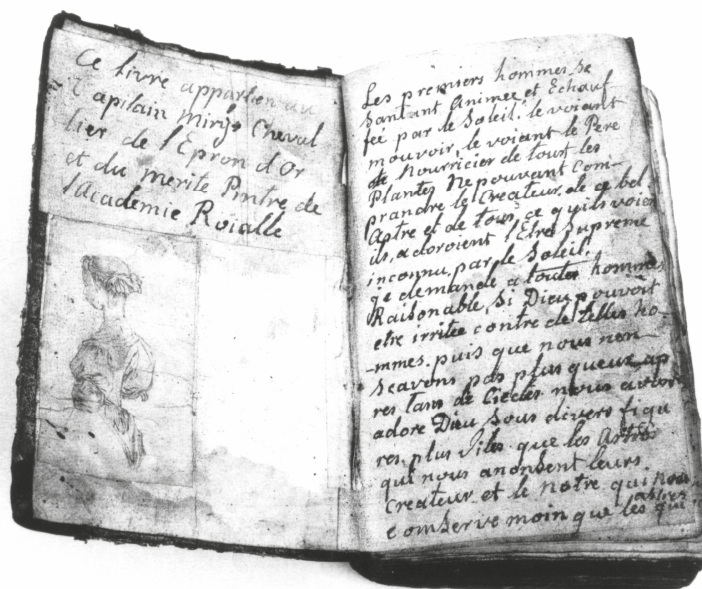 Ce livre appartien au
Capitain Mirys Cheval
lier de l'Epron d'Or
et du merite Pintre de
l'academie Roialle
Les premiers hommes se
Santant Animee et Echauf
fée par le Soleil, le voiant
mouvoir, le voiant le Pere
et Nourricier de tout les
Plantes Ne pouvant Com-
prandre le Createur, de ce bel
Astre et de tous ce qu'ils voioi
ils, adoroient l'Etre Supreme
inconnu, par le Soleil!
je demande a toutes hommes
Raisonable, Si Dieu pouvoit
etre irritée contre de telles ho-
-mmes. puis que nous non
Scavons pas plus queux ap
res tans de Ciecles nous avons
adore Dieu Sous divers figu
res, plus viles que les Astres
qui nous anonsent leurs
Createur et le notre qui nous
Comserve moin que les astres qui